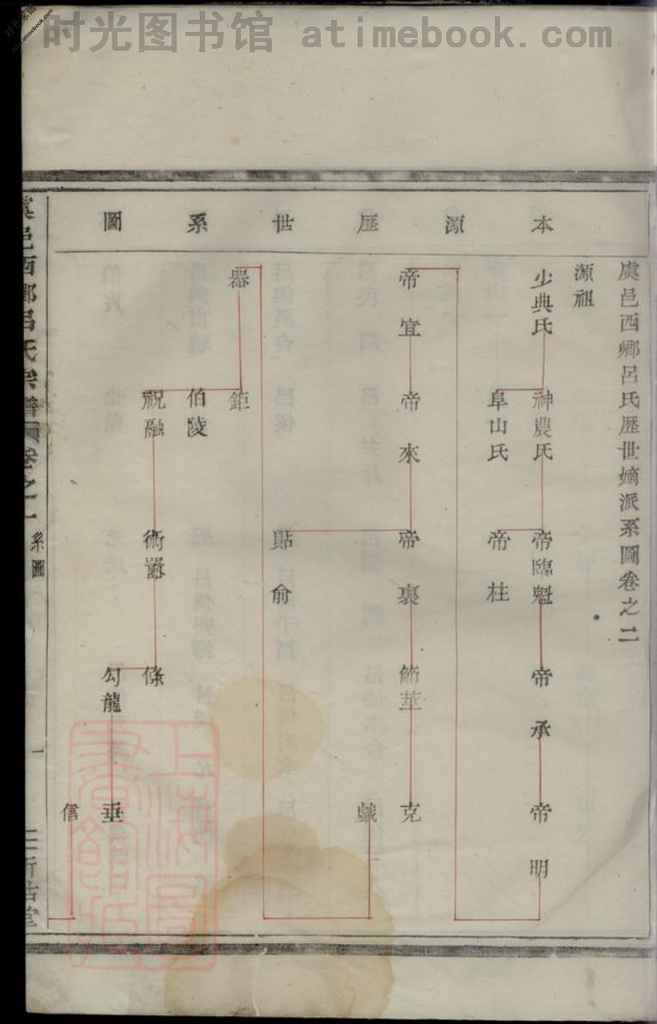 时光图书馆 atimebook.com
虞邑西鄉呂氏歷世嫡派系圖卷之二
本源歷世系圖
源祖
少典氏
神農氏
帝臨魁
帝承
帝明
阜山氏
帝柱
帝宜
帝來
帝裏
節莖
克
戲
貼俞
器
鉅
伯陵
祝融
術囂
條
勾龍
垂
信
虞邑西鄉呂氏宗譜
卷之一
系圖
一